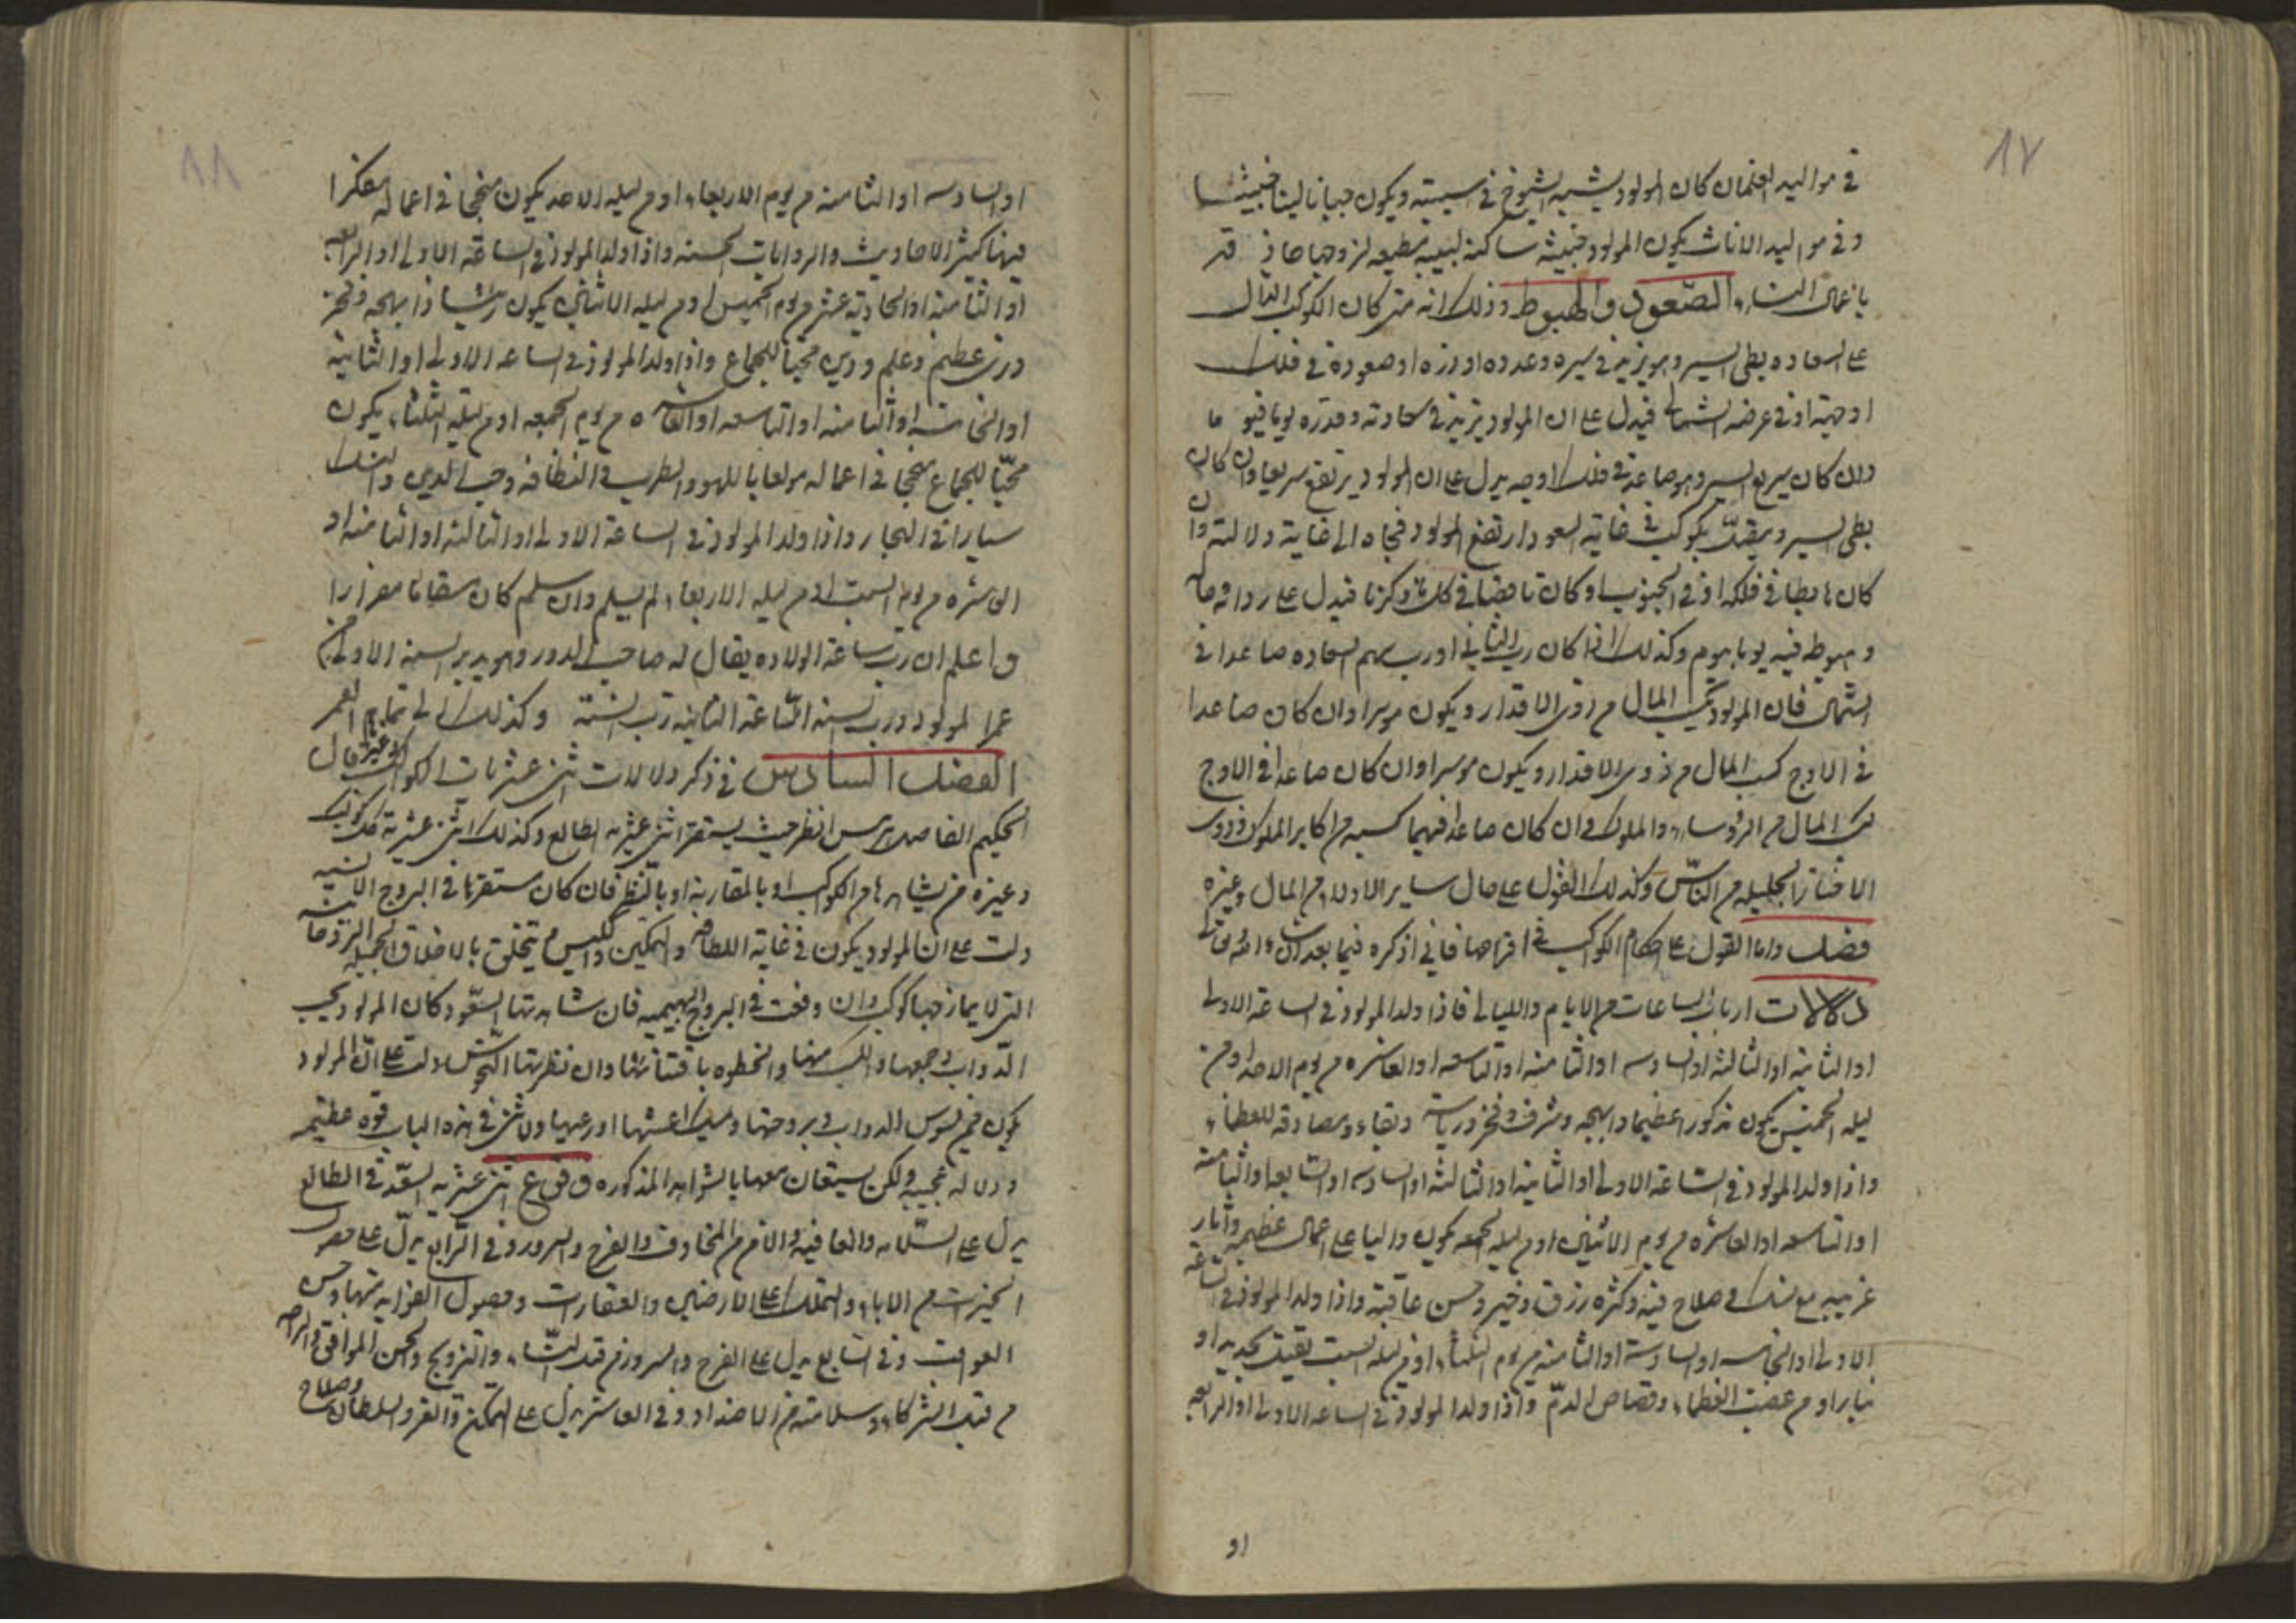 ١٧
في مواليد الغلمان كان المولود يشبه الشيوخ في سيمته ويكون جبانا لينا خبيثا
وفي مواليد الاناث يكون المولود خبيثه ساكنة لبيبة مطيعه لزوجها حاذقه
باعمال النساء الصعود والهبوط وذلك انه متى كان الكوكب الدال
على السعاده بطى السير وهو يزيد في سيره وعدده او نوره او صعوده في فلك
اوجه او في عرضه الشمالي فيدل على ان المولود يزيد في سعادته وقدره يوما فيوما
وان كان سريع السير وهو صاعد في فلك اوجه يدل على ان المولود يرتفع سريعا وان كان
بطى السير ويقبل بكوكب في غاية السعود ارتفع المولود فجاه الى غاية دلالته وان
كان هابطا في فلكه او في الجنوب او كان ناقصا في كل ما ذكرنا فيدل على رداوه حاله
وهبوط فيه يوما بيوم وكذلك اذا كان رب الثاني او رب سهم السعاده صاعدا في
الشمال فان المولود يكسب المال من ذوى الاقدار ويكون موسرا وان كان صاعدا
في الاوج كسب المال من ذوى الاقدار ويكون موسرا وان كان صاعدا في الاوج
كسب المال من الرؤساء والملوك وان كان صاعدا فيهما كسبه من اكابر الملوك وذوى
الاخطار الجليله من الناس وكذلك القول على حال ساير الاولاد من المال وغيره
فصل واما القول على احكام الكواكب في افراحها فاني اذكره فيما بعد ان شاء الله تعالى
دلالات ارباب الساعات من الايام والليالي فاذا ولد المولود في الساعة الاولى
او الثانيه او الثالثه او السادسه او الثامنه او التاسعه او العاشره من يوم الاحد او من
ليله الخميس يكون مذكورا عظيما ذا بهجه وشرف وفخر ورياسة وبقاء ومصادقه للعظماء
واذا ولد المولود في الساعة الاولى او الثانيه او الثالثه او السادسه او السابعه او الثامنه
او التاسعه او العاشره من يوم الاثنين او من ليله الجمعه يكون واليا على اعمال عظيمه واثار
غريبه مع نسك وصلاح فيه وكثره رزق وخير وحسن عاقبة واذا ولد المولود في الساعة
الاولى او الخامسه او السادسة او الثامنه من يوم الثلثاء او من ليله السبت يقتل بحديد او
بنار او من غضب العظماء وقصاص الدم واذا ولد المولود في الساعه الاولى او الرابعه
او
١٨
او السادسه او الثامنه من يوم الاربعاء او من ليله الاحد يكون منجحا في اعماله مفكرا
فيها كثير الاحاديث والروايات الحسنه واذا ولد المولود في الساعة الاولى او الرابعه
او الثامنه او الحادية عشر من يوم الخميس او من ليله الاثنين يكون رئيسا ذا بهجه وفخر
ورزق عظيم وعلم ودين محبا للجماع واذا ولد المولود في الساعه الاولى او الثانية
او الخامسه او الثامنه او التاسعه او العاشره من يوم الجمعه او من ليله الثلثاء يكون
محبّا للجماع منجحا في اعماله مولعا باللهو والطرب والنظافه وحب الدين والنسك
سيارا في البحار واذا ولد المولود في الساعة الاولى او الثالثه او الثامنه او
العاشره من يوم السبت او من ليله الاربعاء لم يسلم وان سلم كان سقاما مضرارا
واعلم ان رب ساعة الولاده يقال له صاحب الدور وهو يدبر السنه الاولى من
عمر المولود ورب السنه الثانيه رب الساعة الثانيه وكذلك الى تمام العمر
الفصل السادس في ذكر دلالات اثنى عشريات الكواكب وغيرها قال
الحكيم الفاضل هرمس انظر حيث يستقر اثنى عشريه الطالع وكذلك اثنى عشرية كل كوكب
وغيره من يشاهدها من الكواكب او بالمقارنه او بالنظر فان كان مستقرها في البروج الانسيه
دلت على ان المولود يكون في غاية اللطافه والتمكين والكيس ويتخلق بالاخلاق الجميله الزوحانيه
التى لا يمازجها كوكب وان وقعت في البروج البهيميه فان شاهدتها السعود كان المولود يحب
الدواب وجمعها والكسب منها والحظوه باقتنائها وان نظرتها النحوس دلت على ان المولود
يكون ممن يسوس الدواب في بروجها ويبيت في اعشها او رعيها ولاثنى في هذه الباب قوه عظيمه
ودلاله عجيبه ولكن يستعان معها بالشواهد المذكوره وقوع اثنى عشريه السعد في الطالع
يدل على السلامه والعافيه والامن من المخاوف والفرح والسرور وفي الرابع يدل على حصول
الخيرات من الاباء والتملك على الارضين والعقارات وحصول الغزايه منها وحسن
العواقب وفي السابع يدل على الفرح والسرور من قبل النساء والتزويج والحسن الموافق والراحه
من قبل الشركاء وسلامته من الاضداد وفي العاشر يدل على التمكن والعز والسلطان وصلاح